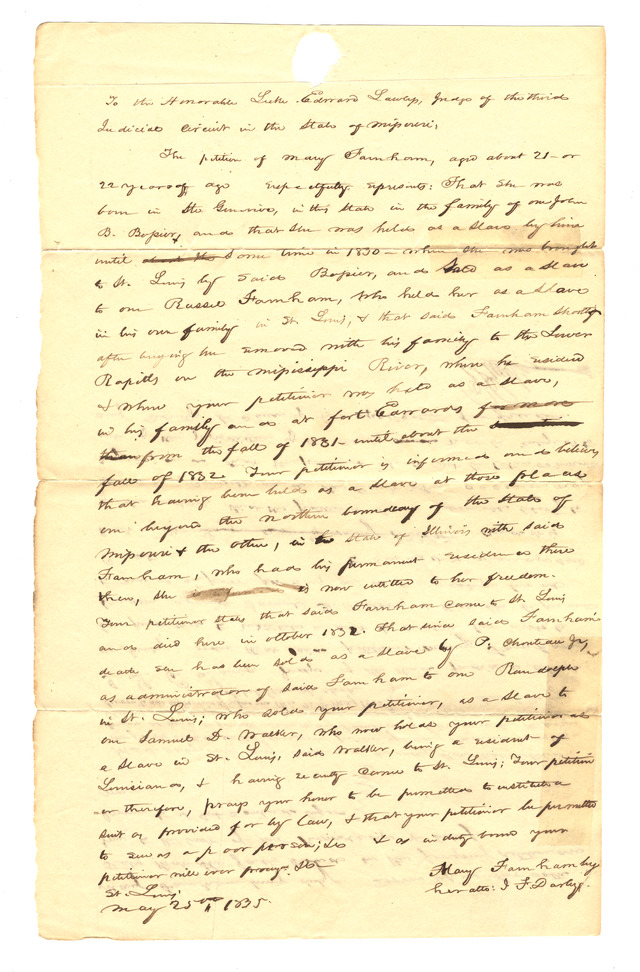 To the Honorable Luke Edward Lawless, Judge of the third
Judicial circuit in the State of Missouri;
The petition of Mary Farnham, aged about 21 or
22 years of age respectfully represents: That she was
born in Ste Genevieve, in this State in the family of one John
B. Bossier, and that she was held as a Slave by him
until some time in 1830 — when she was brought
to St. Louis by said Bossier, and sold as a slave
to one Russel Farnham, who held her as a slave
in his own family in St. Louis, & that said Farnham shortly
after buying her removed with his family to the Lower
Rapids on the Missippi River, where he resided
& where your petitioner was held as a slave,
in his family and at fort Edwards for more
than from the fall of 1831 until about the
fall of 1832. Your petitioner is informed and believes
that having been held as a slave at those places
one beyond the northern boundary of the State of
Missouri & the other, in the State of Illinois with said
Farnham, who had his permanent residence there
then, she is now entitled to her freedom.
Your petitioner states that said Farnham came to St. Louis
and died here in october 1832. That since said Farnham's
death she has been sold as a slave by P. Chouteau Jr,
as administrator of said Farnham to one Randolph
in St. Louis; who sold your petitioner, as a slave to
one Samuel D. Walker, who now holds your petitioner as
a slave in St. Louis, said Walker, being a resident of
Louisiana, & having recently come to St. Louis; Your petition
er therefore, prays your honor to be permitted to institute a
suit as provided for by law, & that your petitioner be permitted
to sue as a poor person; & as in duty bound your
petitioner will ever pray &c
Mary Farnham by
her atto: J F Darby.
St. Louis
May 25th 1835.